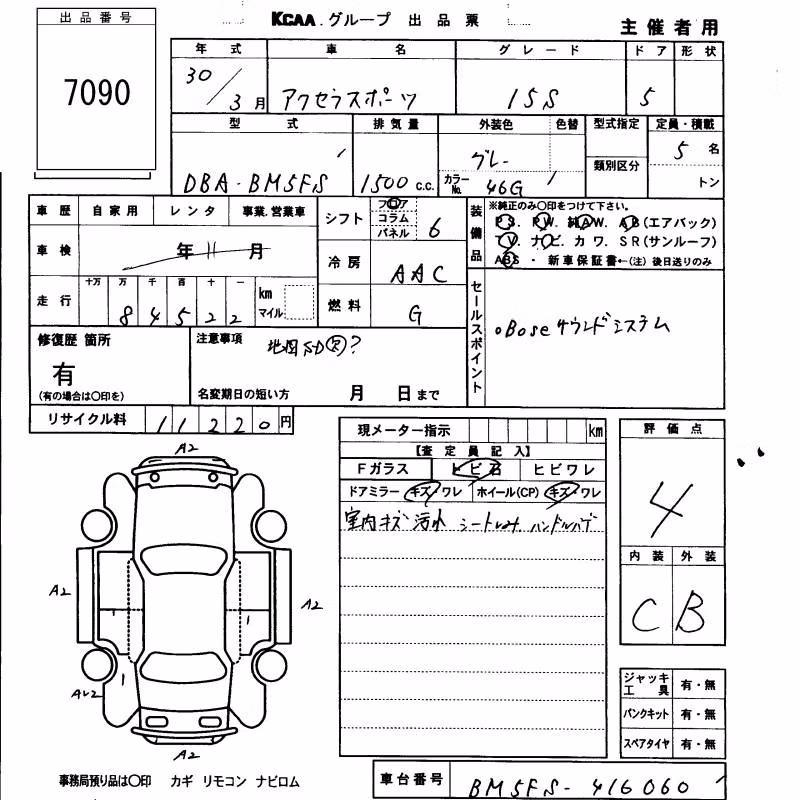 出品番号
7090
KCAA.グループ 出品票
主催者用
年式 車名 グレード ドア 形状
30/3月 アクセラスポーツ 15S 5
型式 排気量 外装色 色替 型式指定 定員・積載
類別区分
DBA-BM5FS 1500 c.c. グレー カラーNo. 46G 5名
トン
車歴 自家用 レンタ 事業.営業車
車検 年 11 月
走行 十万 万 千 百 十 一
84522 km マイル
シフト フロア コラム パネル 6
冷房 AAC
燃料 G
装備品 ※純正のみ〇印をつけて下さい。
PS. PW. 純AW. AB(エアバック)
TV. ナビ. カワ. SR(サンルーフ)
ABS ・ 新車保証書←(注) 後日送りのみ
セールスポイント
。Boseサウンドシステム
修復歴 箇所
有
(有の場合は〇印を)
注意事項
地図SD欠?
名変期日の短い方 月 日まで
リサイクル料 11220円
現メーター指示 km
【査定員記入】
Fガラス トビ石 ヒビワレ
ドアミラー キズ・ワレ ホイール(CP) キズ・ワレ
室内キズ 汚れ シート ハンドルハゲ
評価点
4
内装 外装
C B
A2
A2
A2
1 1
1
AU2
A2
ジャッキ 工具 有・無
パンクキット 有・無
スペアタイヤ 有・無
事務局預り品は〇印 カギ リモコン ナビロム
車台番号 BM5FS-416060